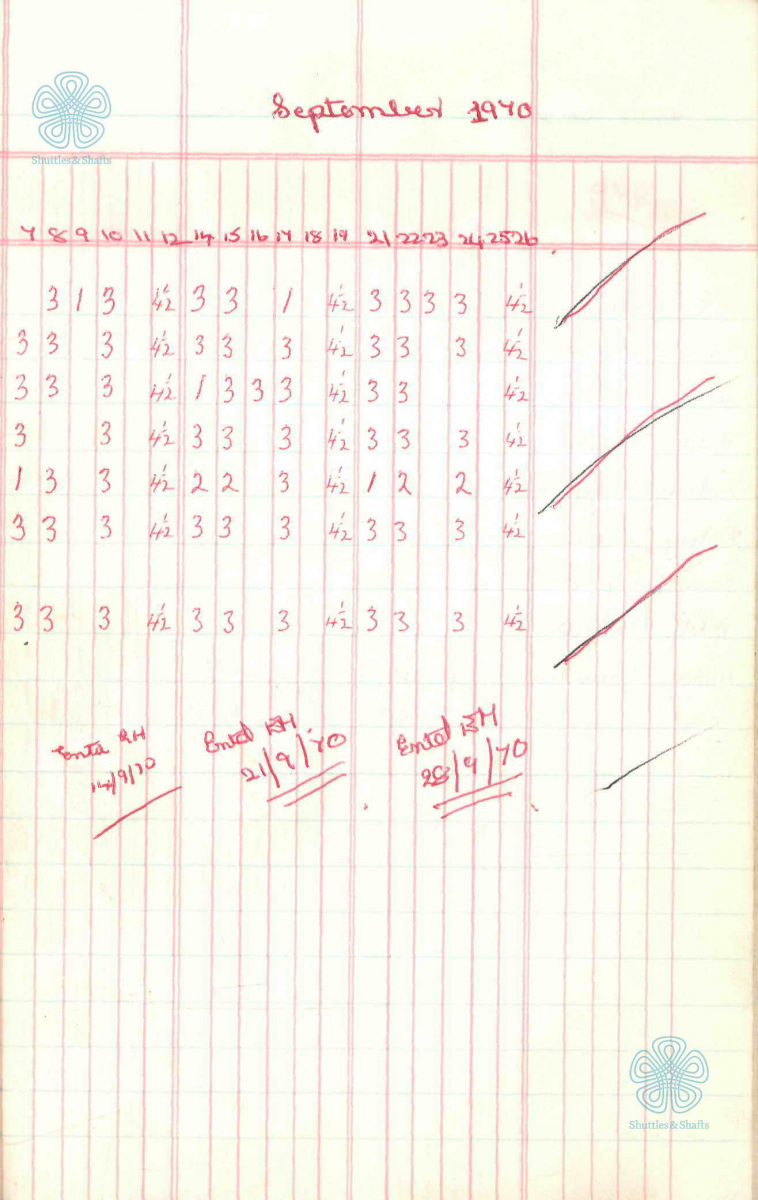 September 1970
Shuttles & Shafts
7 8 9 10 11 12 14 15 16 17 18 19 21 22 23 24 25 26
3 1 3 4½ 3 3 1 4½ 3 3 3 3 4½
3 3 3 4½ 3 3 3 4½ 3 3 3 4½
3 3 3 4½ 1 3 3 3 4½ 3 3 4½
3 3 4½ 3 3 3 4½ 3 3 3 4½
1 3 3 4½ 2 2 3 4½ 1 2 2 4½
3 3 3 4½ 3 3 3 4½ 3 3 3 4½
3 3 3 4½ 3 3 3 4½ 3 3 3 4½
Entd RH
14/9/70
Entd RH
21/9/70
Entd RH
28/9/70
Shuttles & Shafts